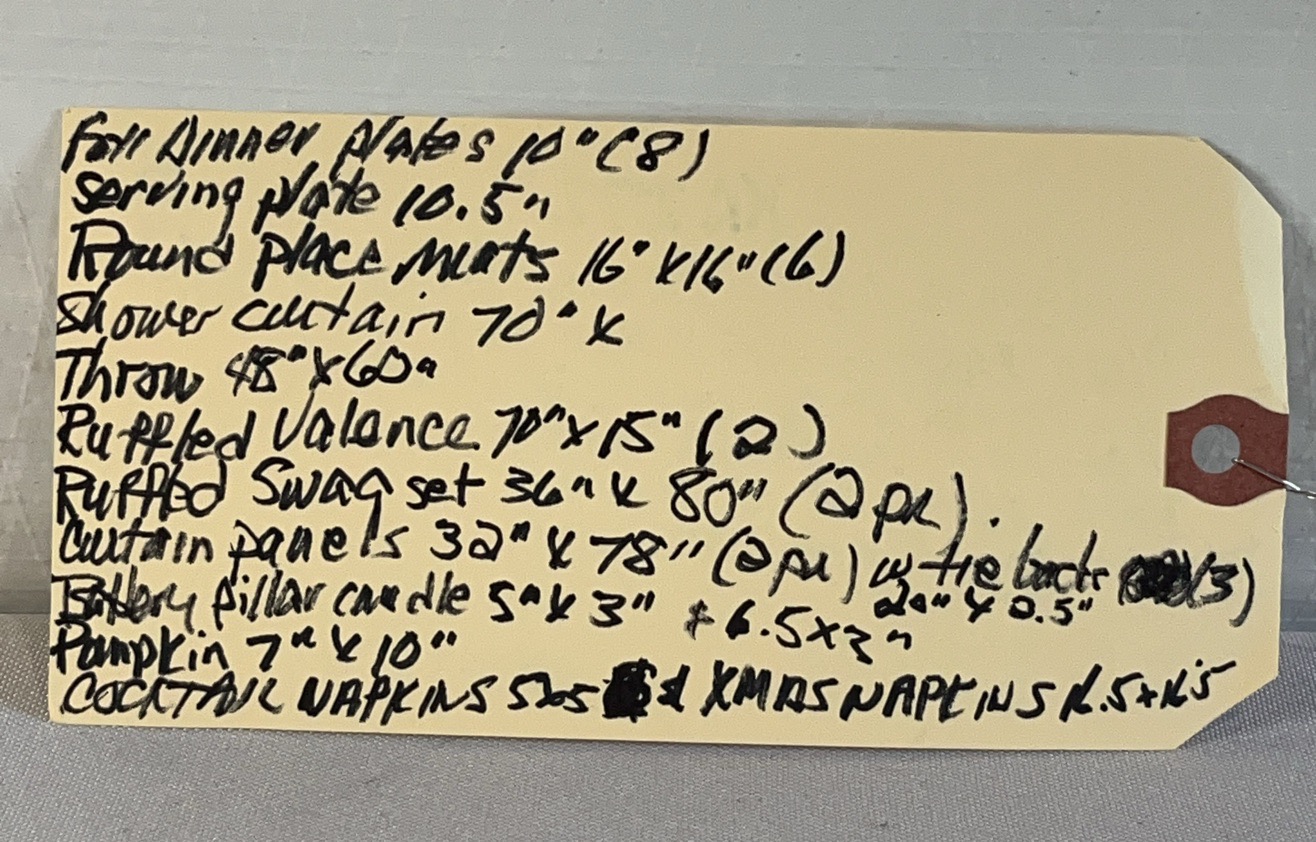 Fall Dinner plates 10" (8)
Serving plate 10.5"
Round place mats 16" x 16" (6)
Shower curtain 70" x
Throw 48" x 60"
Ruffled Valance 70" x 15" (2)
Ruffled Swag set 36" x 80" (2 pk).
Curtain panels 32" x 78" (2 pk) w tie backs (3)
20" x 0.5"
Battery pillar candle 5" x 3" + 6.5 x 3"
Pumpkin 7" x 10"
COCKTAIL NAPKINS 5x5 XMAS NAPKINS